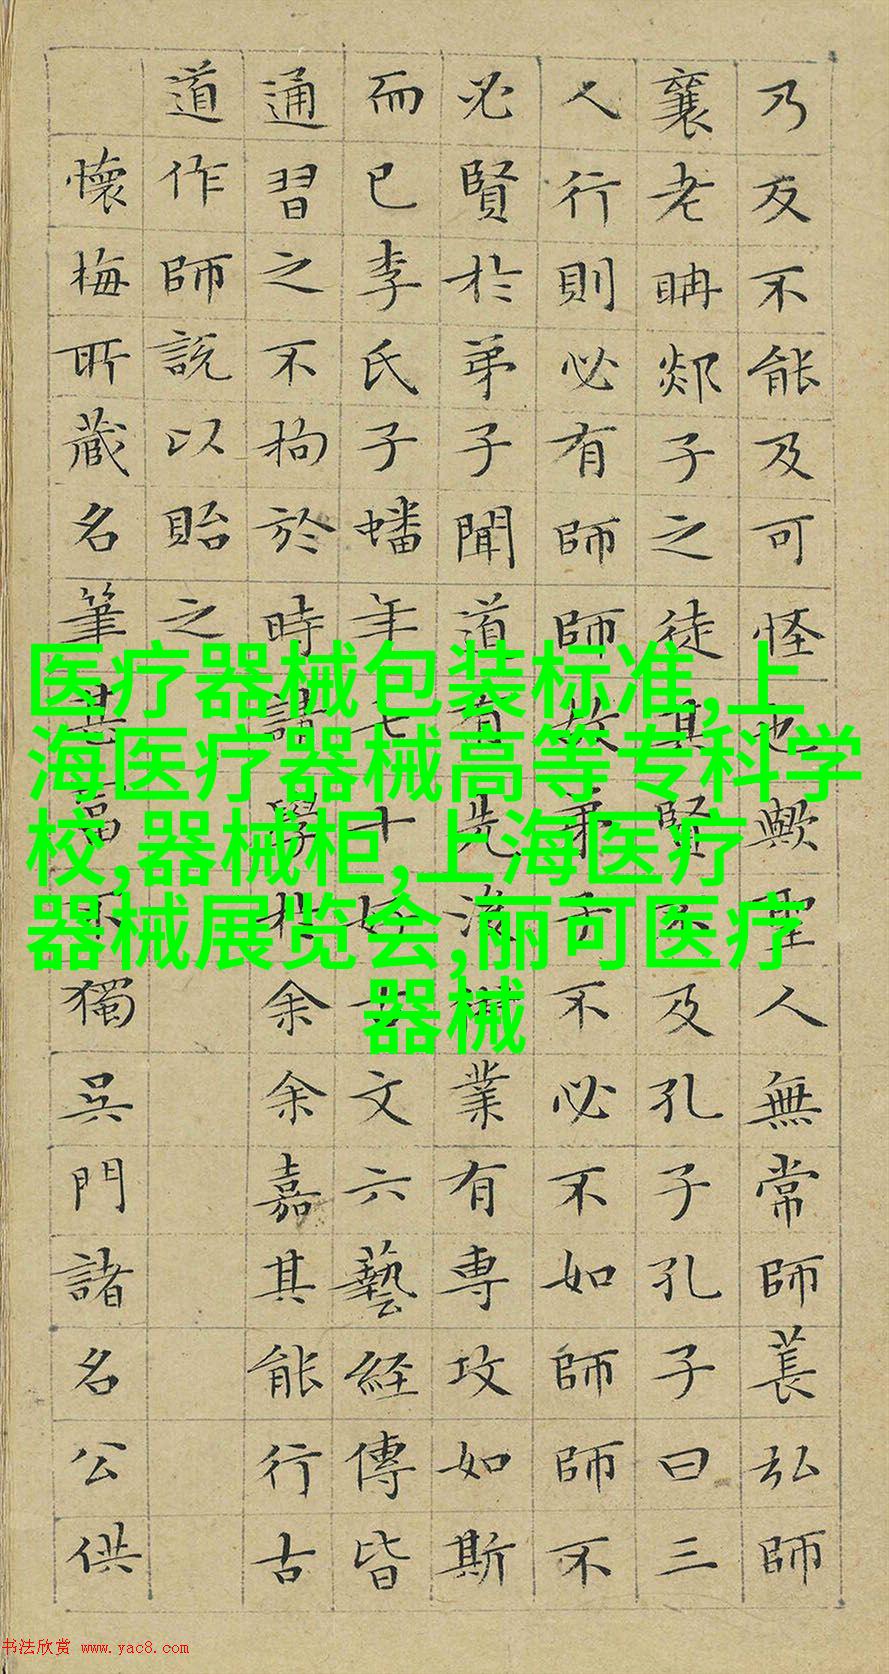 乃反不能及可怪也歟聖人無常師萇弘師
襄老聃郯子之徒其賢不及孔子孔子曰三
人行則必有師師故弟子不必不如師師不
必賢於弟子聞道有先後術業有專攻如斯
而已李氏子蟠年七十好古文六藝經傳皆
通習之不拘於時請學於余余嘉其能行古
道作師說以貽之
懷梅所藏名筆甚富不獨吳門諸名公供
医疗器械包装标准,上
海医疗器械高等专科学
校,器械柜,上海医疗
器械展览会,丽可医疗
器械
书法欣赏 www.yac8.com